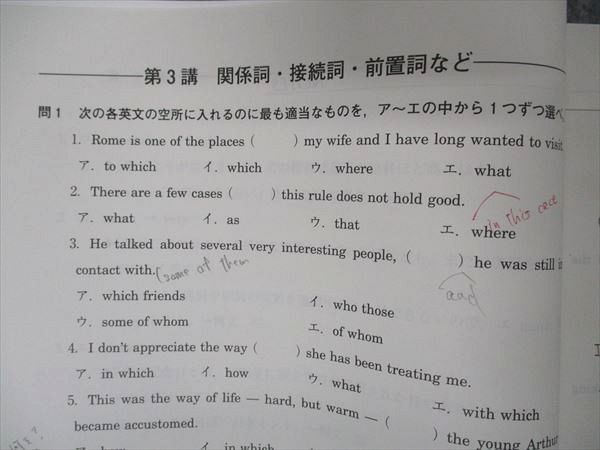 第3講 関係詞・接続詞・前置詞など
問1 次の各英文の空所に入れるのに最も適当なものを，ア～エの中から1つずつ選べ
1. Rome is one of the places ( ) my wife and I have long wanted to visit
ア．to which イ．which ウ．where エ．what
2. There are a few cases ( ) this rule does not hold good.
ア．what イ．as ウ．that エ．where
in this case
3. He talked about several very interesting people, ( ) he was still in
contact with.
(some of them
and
ア．which friends イ．who those
ウ．some of whom エ．of whom
4. I don't appreciate the way ( ) she has been treating me.
ア．in which イ．how ウ．what エ．with which
5. This was the way of life — hard, but warm — ( ) the young Arthur
became accustomed.
イ．in which